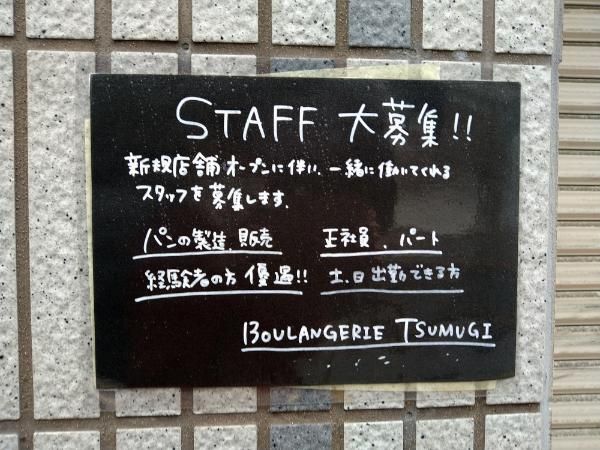 STAFF 大募集!!
新規店舗オープンに伴い、一緒に働いてくれる
スタッフを募集します。
パンの製造、販売 正社員、パート
経験者の方優遇!! 土、日出勤できる方
BOULANGERIE TSUMUGI